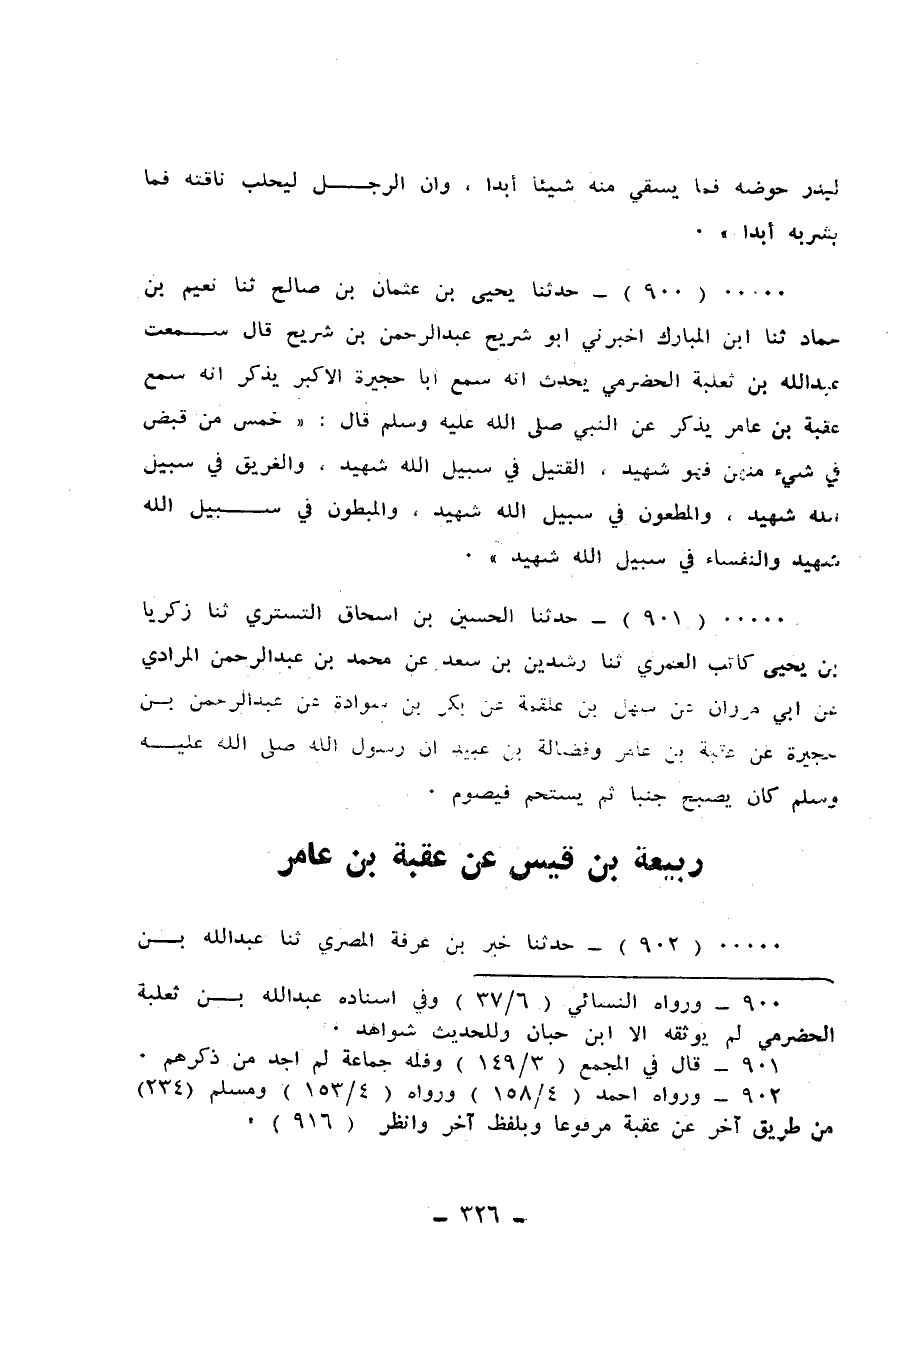 ليمدر حوضه فما يسقي منه شيئا أبدا ، وان الرجل ليحلب ناقته فما
يشربه أبدا » ٠
٠٠٠٠٠ ( ٩٠٠ ) – حدثنا يحيى بن عثمان بن صالح ثنا نعيم بن
حماد ثنا ابن المبارك اخبرني ابو شريح عبدالرحمن بن شريح قال سمعت
عبدالله بن ثعلبة الحضرمي يحدث انه سمع ابا حجيرة الاكبر يذكر انه سمع
عقبة بن عامر يذكر عن النبي صلى الله عليه وسلم قال : « خمس من قبض
في شيء منهن فهو شهيد ، القتيل في سبيل الله شهيد ، والغريق في سبيل
الله شهيد ، والمطعون في سبيل الله شهيد ، والمبطون في سبيل الله
شهيد والنفساء في سبيل الله شهيد » ٠
٠٠٠٠٠ ( ٩٠١ ) – حدثنا الحسين بن اسحاق التستري ثنا زكريا
بن يحيى كاتب العمري ثنا رشدين بن سعد عن محمد بن عبدالرحمن المرادي
عن ابي مرزان عن سهل بن علقمة عن بكر بن سوادة عن عبدالرحمن بن
حجيرة عن عقبة بن عامر وفضالة بن عبيد ان رسول الله صلى الله عليه
وسلم كان يصبح جنبا ثم يستحم فيصوم ٠
ربيعة بن قيس عن عقبة بن عامر
٠٠٠٠٠ ( ٩٠٢ ) – حدثنا خير بن عرفة المصري ثنا عبدالله بن
٩٠٠ – ورواه النسائي ( ٣٧/٦ ) وفي اسناده عبدالله بن ثعلبة
الحضرمي لم يوثقه الا ابن حبان وللحديث شواهد ٠
٩٠١ – قال في المجمع ( ١٤٩/٣ ) وفله جماعة لم اجد من ذكرهم ٠
٩٠٢ – ورواه احمد ( ١٥٨/٤ ) ورواه ( ١٥٣/٤ ) ومسلم (٢٣٤)
من طريق آخر عن عقبة مرفوعا وبلفظ آخر وانظر ( ٩١٦ ) ٠
– ٣٢٦ –